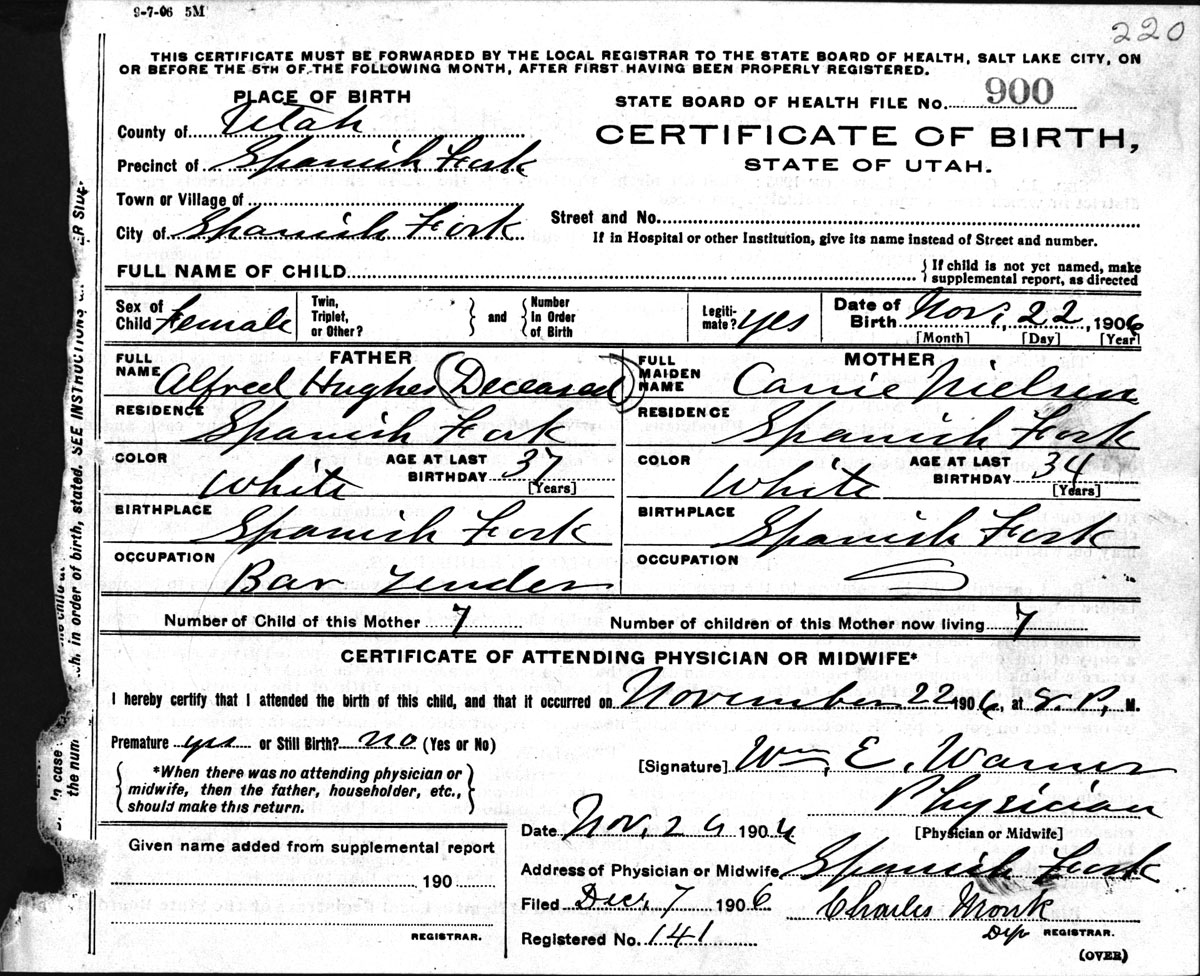 9-7-06 5M
220
THIS CERTIFICATE MUST BE FORWARDED BY THE LOCAL REGISTRAR TO THE STATE BOARD OF HEALTH, SALT LAKE CITY, ON
OR BEFORE THE 5TH OF THE FOLLOWING MONTH, AFTER FIRST HAVING BEEN PROPERLY REGISTERED.
PLACE OF BIRTH
STATE BOARD OF HEALTH FILE No. 900
County of Utah
CERTIFICATE OF BIRTH,
Precinct of Spanish Fork
STATE OF UTAH.
Town or Village of
Street and No.
City of Spanish Fork
If in Hospital or other Institution, give its name instead of Street and number.
FULL NAME OF CHILD { If child is not yet named, make
supplemental report, as directed
Sex of Child Female
Twin, Triplet, or Other? } and { Number In Order of Birth
Legiti-mate? yes
Date of Birth Nov. 22, 1906
[Month] [Day] [Year]
FATHER
FULL NAME Alfred Hughes (Deceased)
MOTHER
FULL MAIDEN NAME Carrie Nielsen
RESIDENCE Spanish Fork
RESIDENCE Spanish Fork
COLOR White AGE AT LAST BIRTHDAY 37 [Years]
COLOR White AGE AT LAST BIRTHDAY 34 [Years]
BIRTHPLACE Spanish Fork
BIRTHPLACE Spanish Fork
OCCUPATION Bar tender
OCCUPATION
Number of Child of this Mother 7 Number of children of this Mother now living 7
CERTIFICATE OF ATTENDING PHYSICIAN OR MIDWIFE*
I hereby certify that I attended the birth of this child, and that it occurred on November 22 1906, at P. M.
Premature yes or Still Birth? no (Yes or No)
[Signature] Wm. E. Warner
{ *When there was no attending physician or
midwife, then the father, householder, etc.,
should make this return. }
Physician
[Physician or Midwife]
Date Nov. 190
Given name added from supplemental report
Address of Physician or Midwife Spanish Fork
190
Filed Dec. 7 1906 Charles Monk
REGISTRAR.
Dep REGISTRAR.
Registered No. 141
(OVER)
in order of birth, stated. SEE INSTRUCTIONS
In case
the num